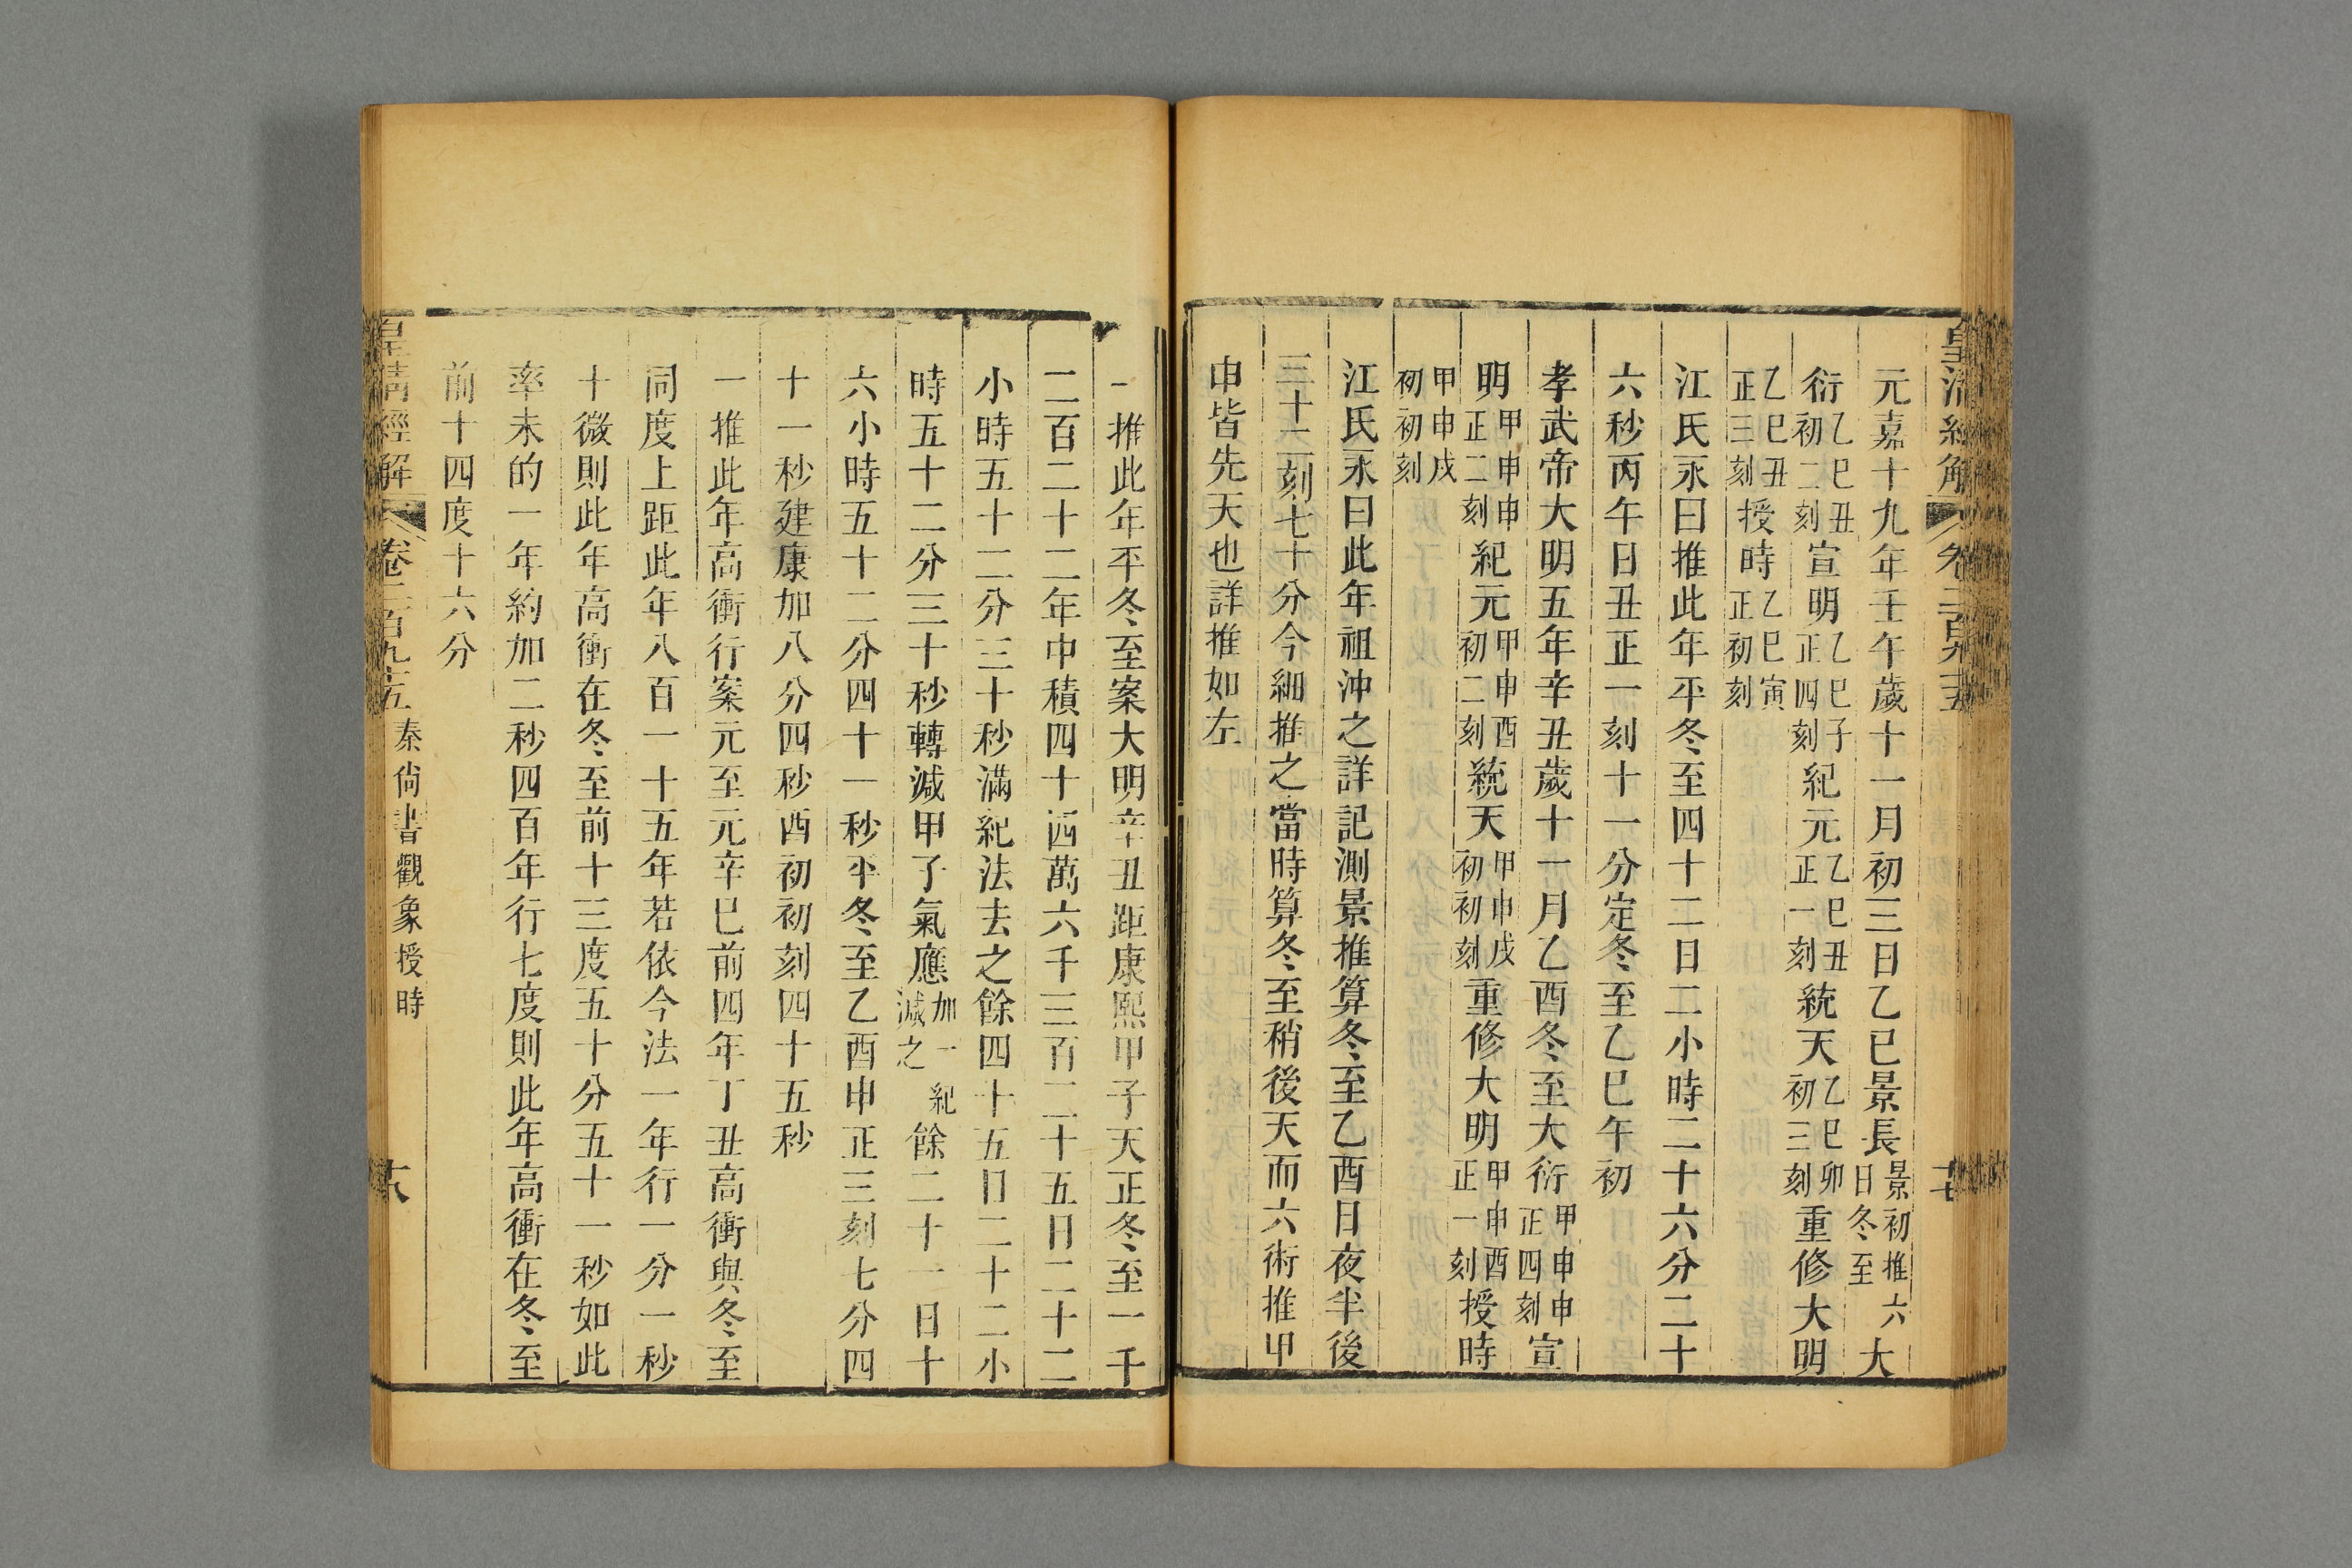 皇清經解 卷二百九十五 十七
元嘉十九年壬午歲十一月初三日乙巳景長景初推六日冬至大
衍乙巳丑初二刻宣明乙巳子正四刻紀元乙巳丑正一刻統天乙巳卯初三刻重修大明
乙巳丑正三刻授時乙巳寅正初刻
江氏永曰推此年平冬至四十二日二小時二十六分二十
六秒丙午日丑正一刻十一分定冬至乙巳午初
孝武帝大明五年辛丑歲十一月乙酉冬至大衍甲申申正四刻宣
明甲申申正二刻紀元甲申酉初二刻統天甲申戌初初刻重修大明甲申酉正一刻授時
甲申戌初初刻
江氏永曰此年祖沖之詳記測景推算冬至乙酉日夜半後
三十二刻七十分今細推之當時算冬至稍後天而六術推甲
申皆先天也詳推如左
一推此年平冬至案大明辛丑距康熙甲子天正冬至一千
二百二十二年中積四十四萬六千三百二十五日二十二
小時五十二分三十秒滿紀法去之餘四十五日二十二小
時五十二分三十秒轉減甲子氣應加一紀減之餘二十一日十
六小時五十二分四十一秒平冬至乙酉申正三刻七分四
十一秒建康加八分四秒酉初初刻四十五秒
一推此年高衝行案元至元辛巳前四年丁丑高衝與冬至
同度上距此年八百一十五年若依今法一年行一分一秒
十微則此年高衝在冬至前十三度五十分五十一秒如此
率未的一年約加二秒四百年行七度則此年高衝在冬至
前十四度十六分
皇清經解 卷二百九十五 秦尙書觀象授時 十八